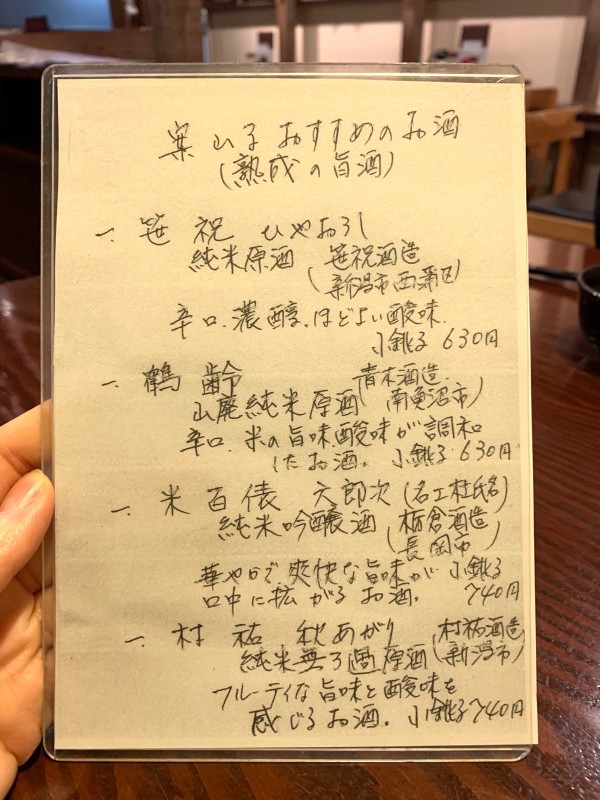 案山子おすすめのお酒
(熟成の旨酒)
一、笹祝 ひやおろし
純米原酒 笹祝酒造
(新潟市西蒲区)
辛口.濃醇.ほどよい酸味.
小銚子 630円
一、鶴齢 青木酒造.
山廃純米原酒 南魚沼市)
辛口.米の旨味酸味が調和
したお酒. 小銚子630円
一、米百俵 六郎次(名工杜氏名)
純米吟醸酒 (栃倉酒造
(長岡市)
華やかで爽快な旨味が 小銚子
口中に拡がるお酒. 740円
一、村祐 秋あがり (村祐酒造
純米無ろ過原酒 (新潟市)
フルーティな旨味と酸味を
感じるお酒.小銚子740円